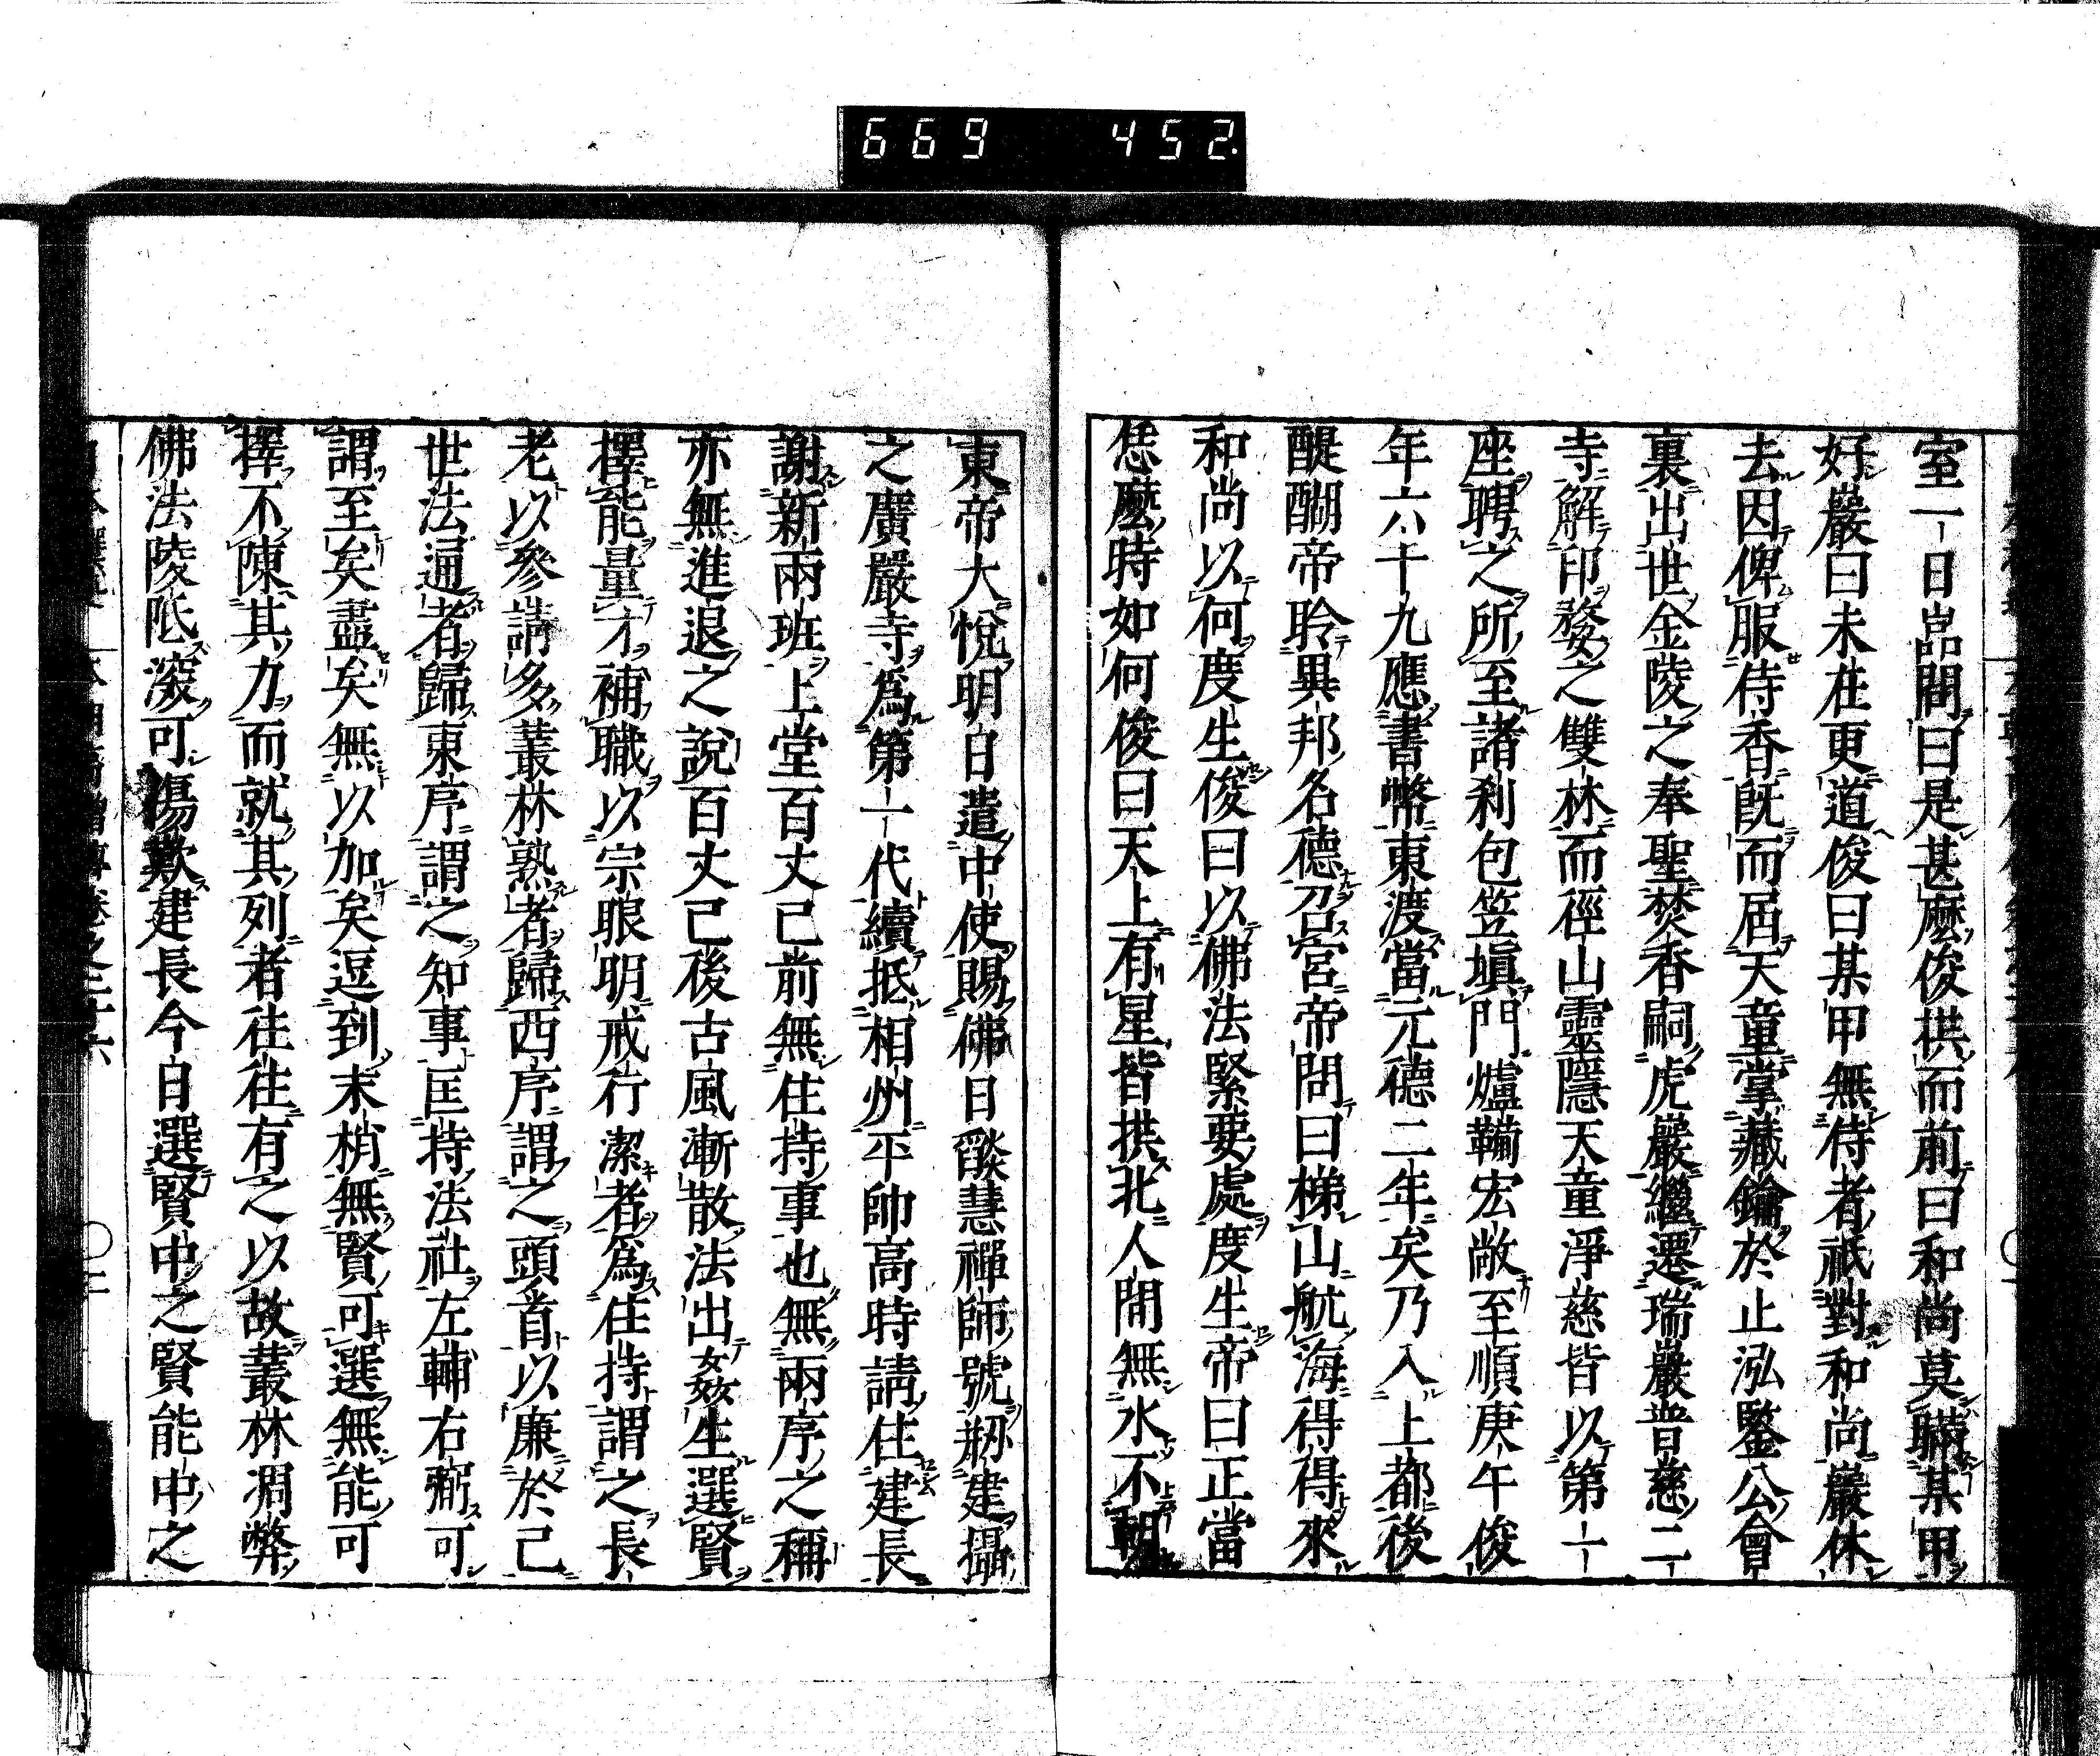 669 452
室一日嵓問曰是甚麼俊拱而前曰和尚莫瞞某甲
好巖曰未在更道俊曰某甲無侍者祇對和尚巖休
去因俾服侍香既而居天童掌藏鑰於止泓鑒公會
裏出世金陵之奉聖焚香嗣虎巖繼遷瑞巖普慈二
寺解印務之雙林而徑山靈隱天童淨慈皆以第一
座聘之所至諸刹包笠塡門爐鞴宏敞至順庚午俊
年六十九應書幣東渡當元德二年矣乃入上都後
醍醐帝聆異邦名德召宮帝問曰梯山航海得得來
和尚以何度生俊曰以佛法緊要處度生帝曰正當
恁麼時如何俊曰天上有星皆拱北人間無水不朝
東帝大悅明日遣中使賜佛日燄慧禪師號剏建攝
之廣嚴寺爲第一代續抵相州平帥高時請住建長
謝新兩班上堂百丈已前無住持事也無兩序之稱
亦無進退之說百丈已後古風漸散法出姦生選賢
擇能量才補職以宗眼明戒行潔者爲住持謂之長
老以參請多叢林熟者歸西序謂之頭首以廉於己
世法通者歸東序謂之知事匡持法社左輔右弼可
謂至矣盡矣無以加矣逗到末梢無賢可選無能可
擇不陳其力而就其列者往往有之以故叢林凋弊
佛法陵𡰖滾可傷歎建長今日選賢中之賢能中之